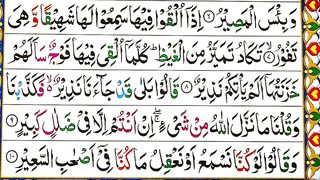 وَبِئْسَ الْمَصِيْرُ ۶ اِذَاۤ اُلْقُوْا فِيْهَا سَمِعُوْا لَهَا شَهِيْقًا وَّهِىَ
تَفُوْرُ ۷ تَكَادُ تَمَيَّزُ مِنَ الْغَيْظِ ؕ كُلَّمَاۤ اُلْقِىَ فِيْهَا فَوْجٌ سَاَلَهُمْ
خَزَنَتُهَاۤ اَلَمْ يَاْتِكُمْ نَذِيْرٌ ۸ قَالُوْا بَلٰى قَدْ جَآءَنَا نَذِيْرٌ ۙ فَكَذَّبْنَا
وَقُلْنَا مَا نَزَّلَ اللّٰهُ مِنْ شَىْءٍ ۚ اِنْ اَنْتُمْ اِلَّا فِىْ ضَلٰلٍ كَبِيْرٍ ۹
وَقَالُوْا لَوْ كُنَّا نَسْمَعُ اَوْ نَعْقِلُ مَا كُنَّا فِىْۤ اَصْحٰبِ السَّعِيْرِ ۱۰